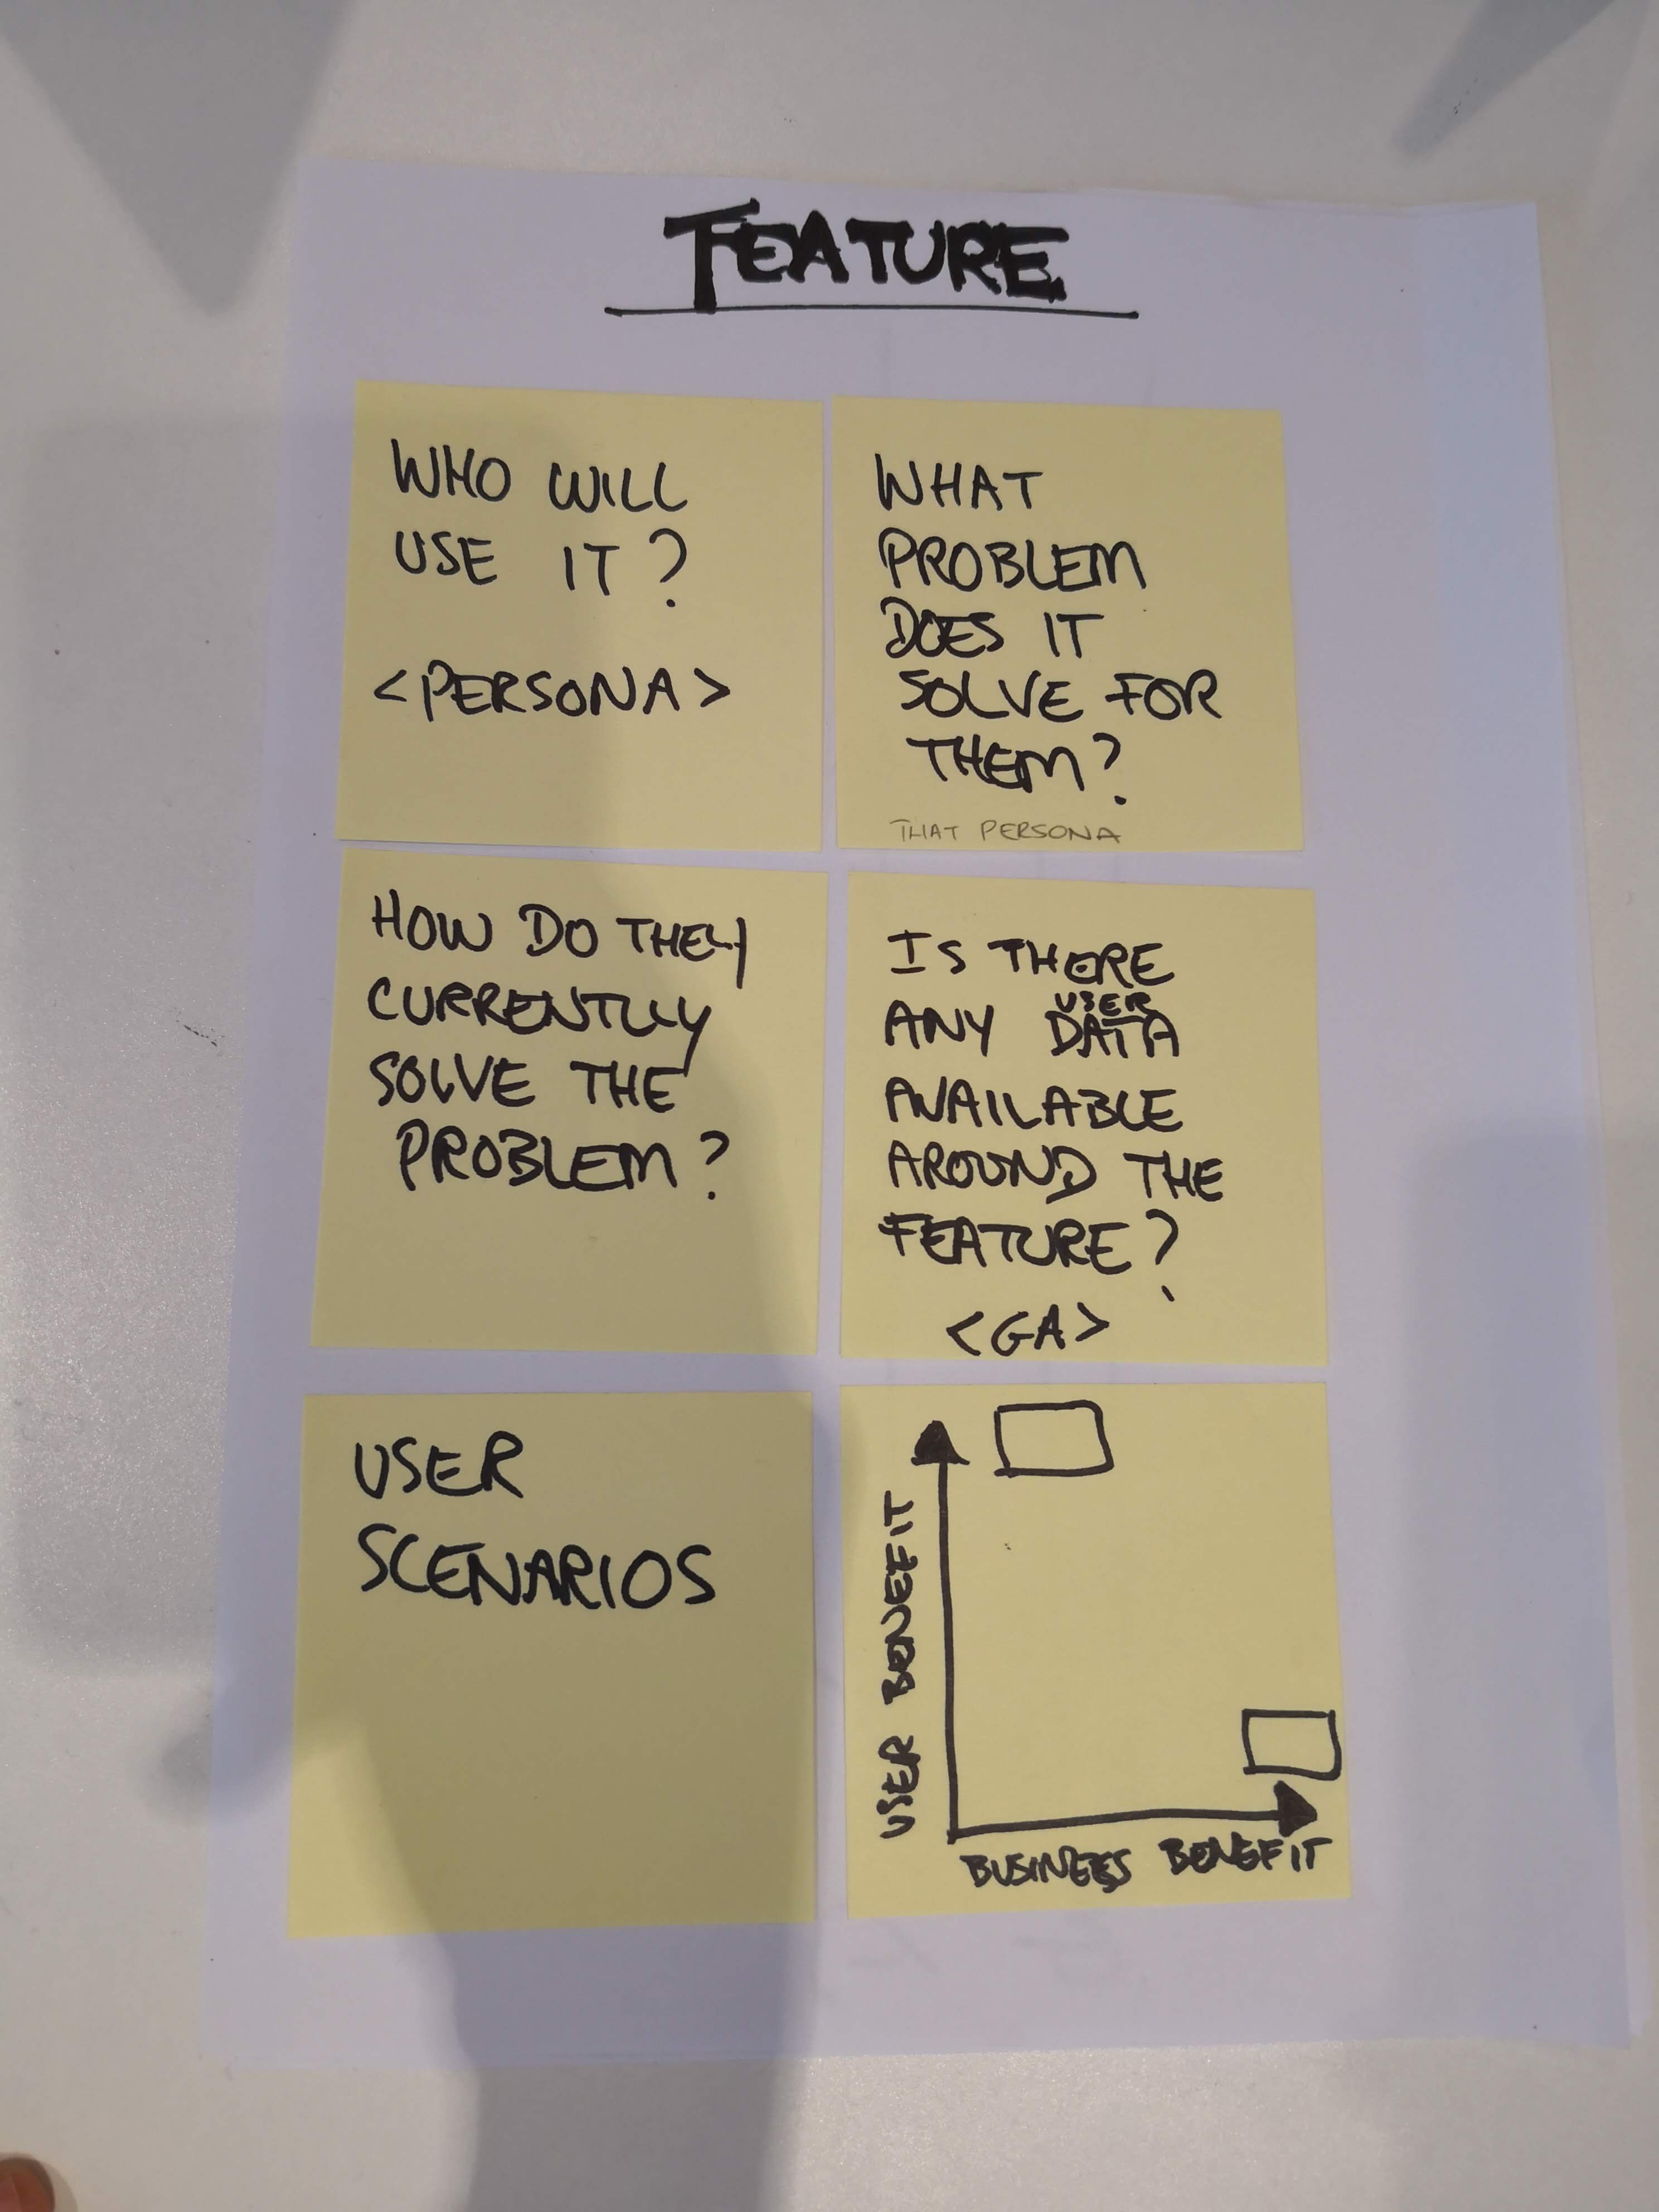 FEATURE
WHO WILL
USE IT?
<PERSONA>
WHAT
PROBLEM
DOES IT
SOLVE FOR
THEM?
THAT PERSONA
HOW DO THEY
CURRENTLY
SOLVE THE
PROBLEM?
IS THERE
ANY USER DATA
AVAILABLE
AROUND THE
FEATURE?
<GA>
USER
SCENARIOS
USER BENEFIT
BUSINESS BENEFIT